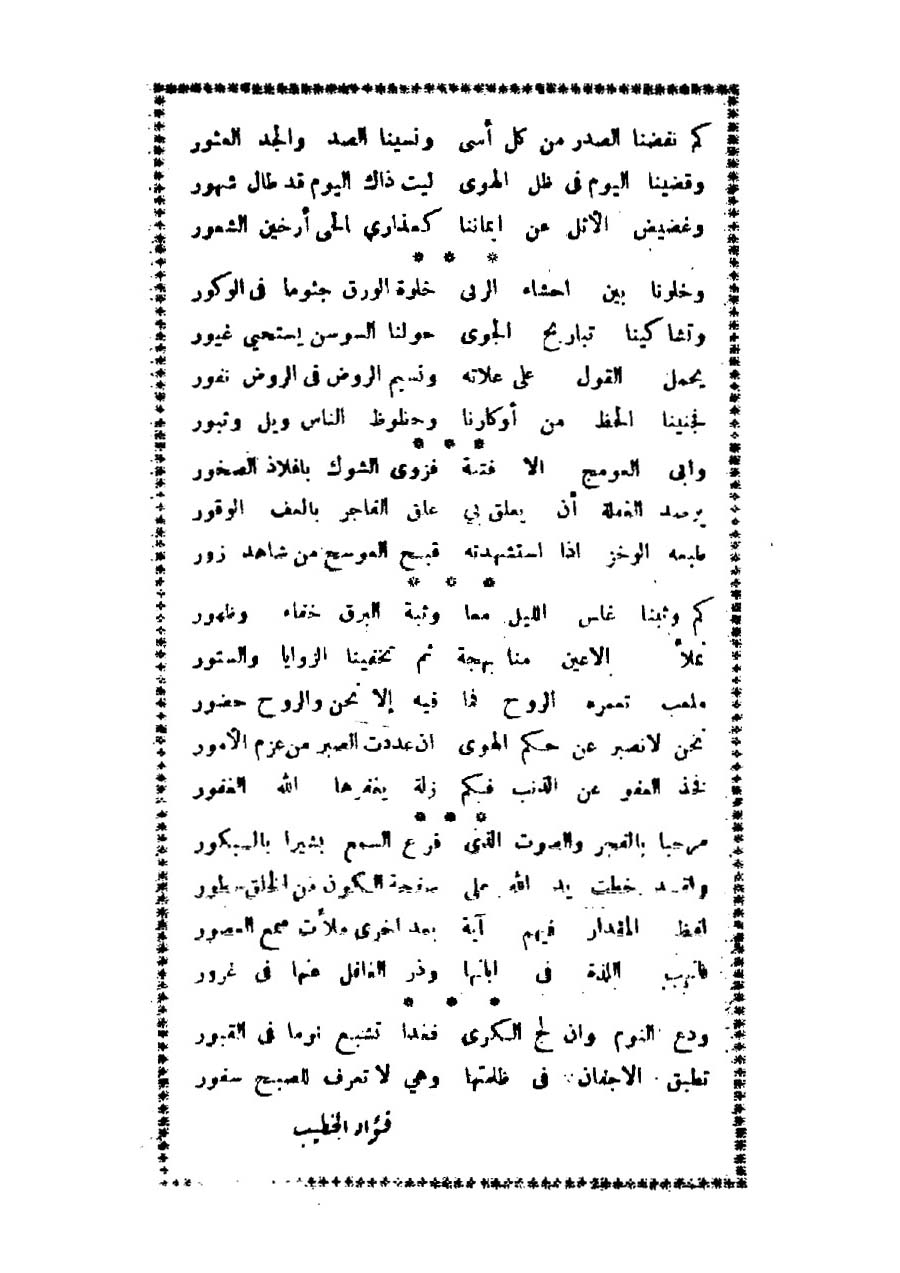 كم نفضنا الصدر من كل أسى ونسينا الصد والجد العثور
وقضينا اليوم فى ظل الهوى ليت ذاك اليوم قد طال شهور
وغضيض الأثل عن ايماننا كعذاري الحى أرخين الشعور
* * *
وخلونا بين احشاء الربى خلوة الورق جثوما فى الوكور
وتشاكينا تباريح الجوى حولنا السوسن يستحيي غيور
يحمل القول على علاته ونسيم الروض فى الروض نفور
فجنينا الحظ من أوكارنا وحظوظ الناس ويل وثبور
* * *
وابى العوسج الا فتنة فزوى الشوك بافلاذ الصخور
يرصد الغفلة أن يعلق بي علق الفاجر بالعف الوقور
طبعه الوخز اذا استشهدته قبح العوسج من شاهد زور
* * *
كم وثبنا غلس الليل معا وثبة البرق خفاء وظهور
نملأ الاعين منا بهجة ثم تخفينا الزوايا والستور
ملعب تعمره الروح فما فيه إلا نحن والروح حضور
نحن لانصبر عن حكم الهوى ان عددت الصبر من عزم الأمور
فخذ العفو عن الذنب فكم زلة يغفرها الله الغفور
* * *
مرحبا بالفجر والصوت الذى قرع السمع بشيرا بالبكور
ولقد خطت يد الله على صفحة الكون من الخلق سطور
لفظ المقدار فيهم آية بعد اخرى ملأت سمع العصور
فانهب اللذة فى ابانها وذر الغافل عنها فى غرور
* * *
ودع النوم وان لج الكرى فغدا تشبع نوما فى القبور
تطبق الاجفان فى ظلمتها وهي لا تعرف للصبح سفور
فؤاد الخطيب